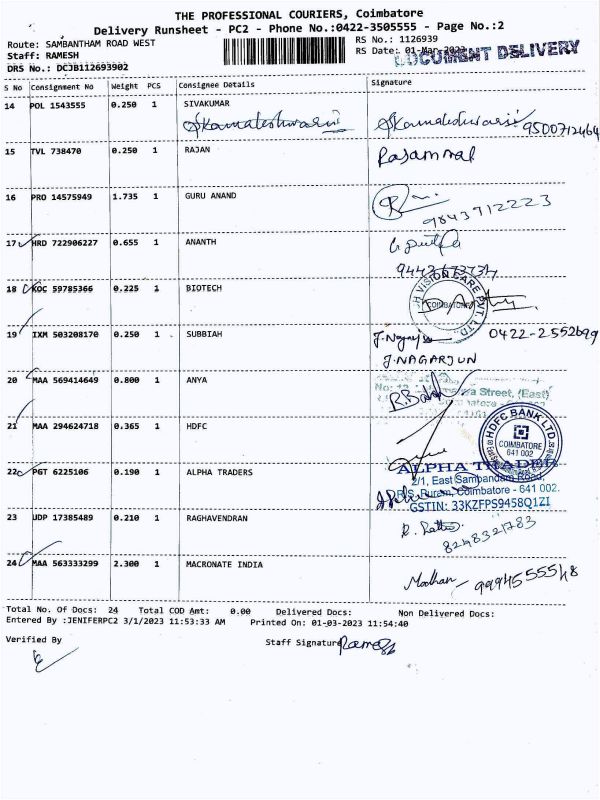 THE PROFESSIONAL COURIERS, Coimbatore
Delivery Runsheet - PC2 - Phone No.:0422-3505555 - Page No.:2
Route: SAMBANTHAM ROAD WEST
Staff: RAMESH
DRS No.: DCJB112693902
RS No.: 1126939
RS Date: 01-Mar-2023
DOCUMENT DELIVERY
S No Consignment No Weight PCS Consignee Details Signature
14 POL 1543555 0.250 1 SIVAKUMAR
SKamaleshwari SKamaleshwari 9500712464
15 TVL 738470 0.250 1 RAJAN Rajammal
16 PRO 14575949 1.735 1 GURU ANAND
9843712223
17 HRD 722906227 0.655 1 ANANTH
18 KOC 59785366 0.225 1 BIOTECH
VISION CARE PVT. LTD
COIMBATORE
19 IXM 503208170 0.250 1 SUBBIAH 0422-2552699
J.NAGARJUN
20 MAA 569414649 0.800 1 ANYA
Street, (East)
21 MAA 294624718 0.365 1 HDFC
HDFC BANK LTD.
COIMBATORE
641 002
22 PGT 6225106 0.190 1 ALPHA TRADERS
ALPHA TRADER
2/1, East Sambandam Road,
R.S. Puram, Coimbatore - 641 002.
GSTIN: 33KZFPS9458Q1ZI
23 UDP 17385489 0.210 1 RAGHAVENDRAN
8248321783
24 MAA 563333299 2.300 1 MACRONATE INDIA
Madhan - 9994555548
Total No. Of Docs: 24 Total COD Amt: 0.00 Delivered Docs: Non Delivered Docs:
Entered By :JENIFERPC2 3/1/2023 11:53:33 AM Printed On: 01-03-2023 11:54:40
Verified By Staff Signature Ramesh